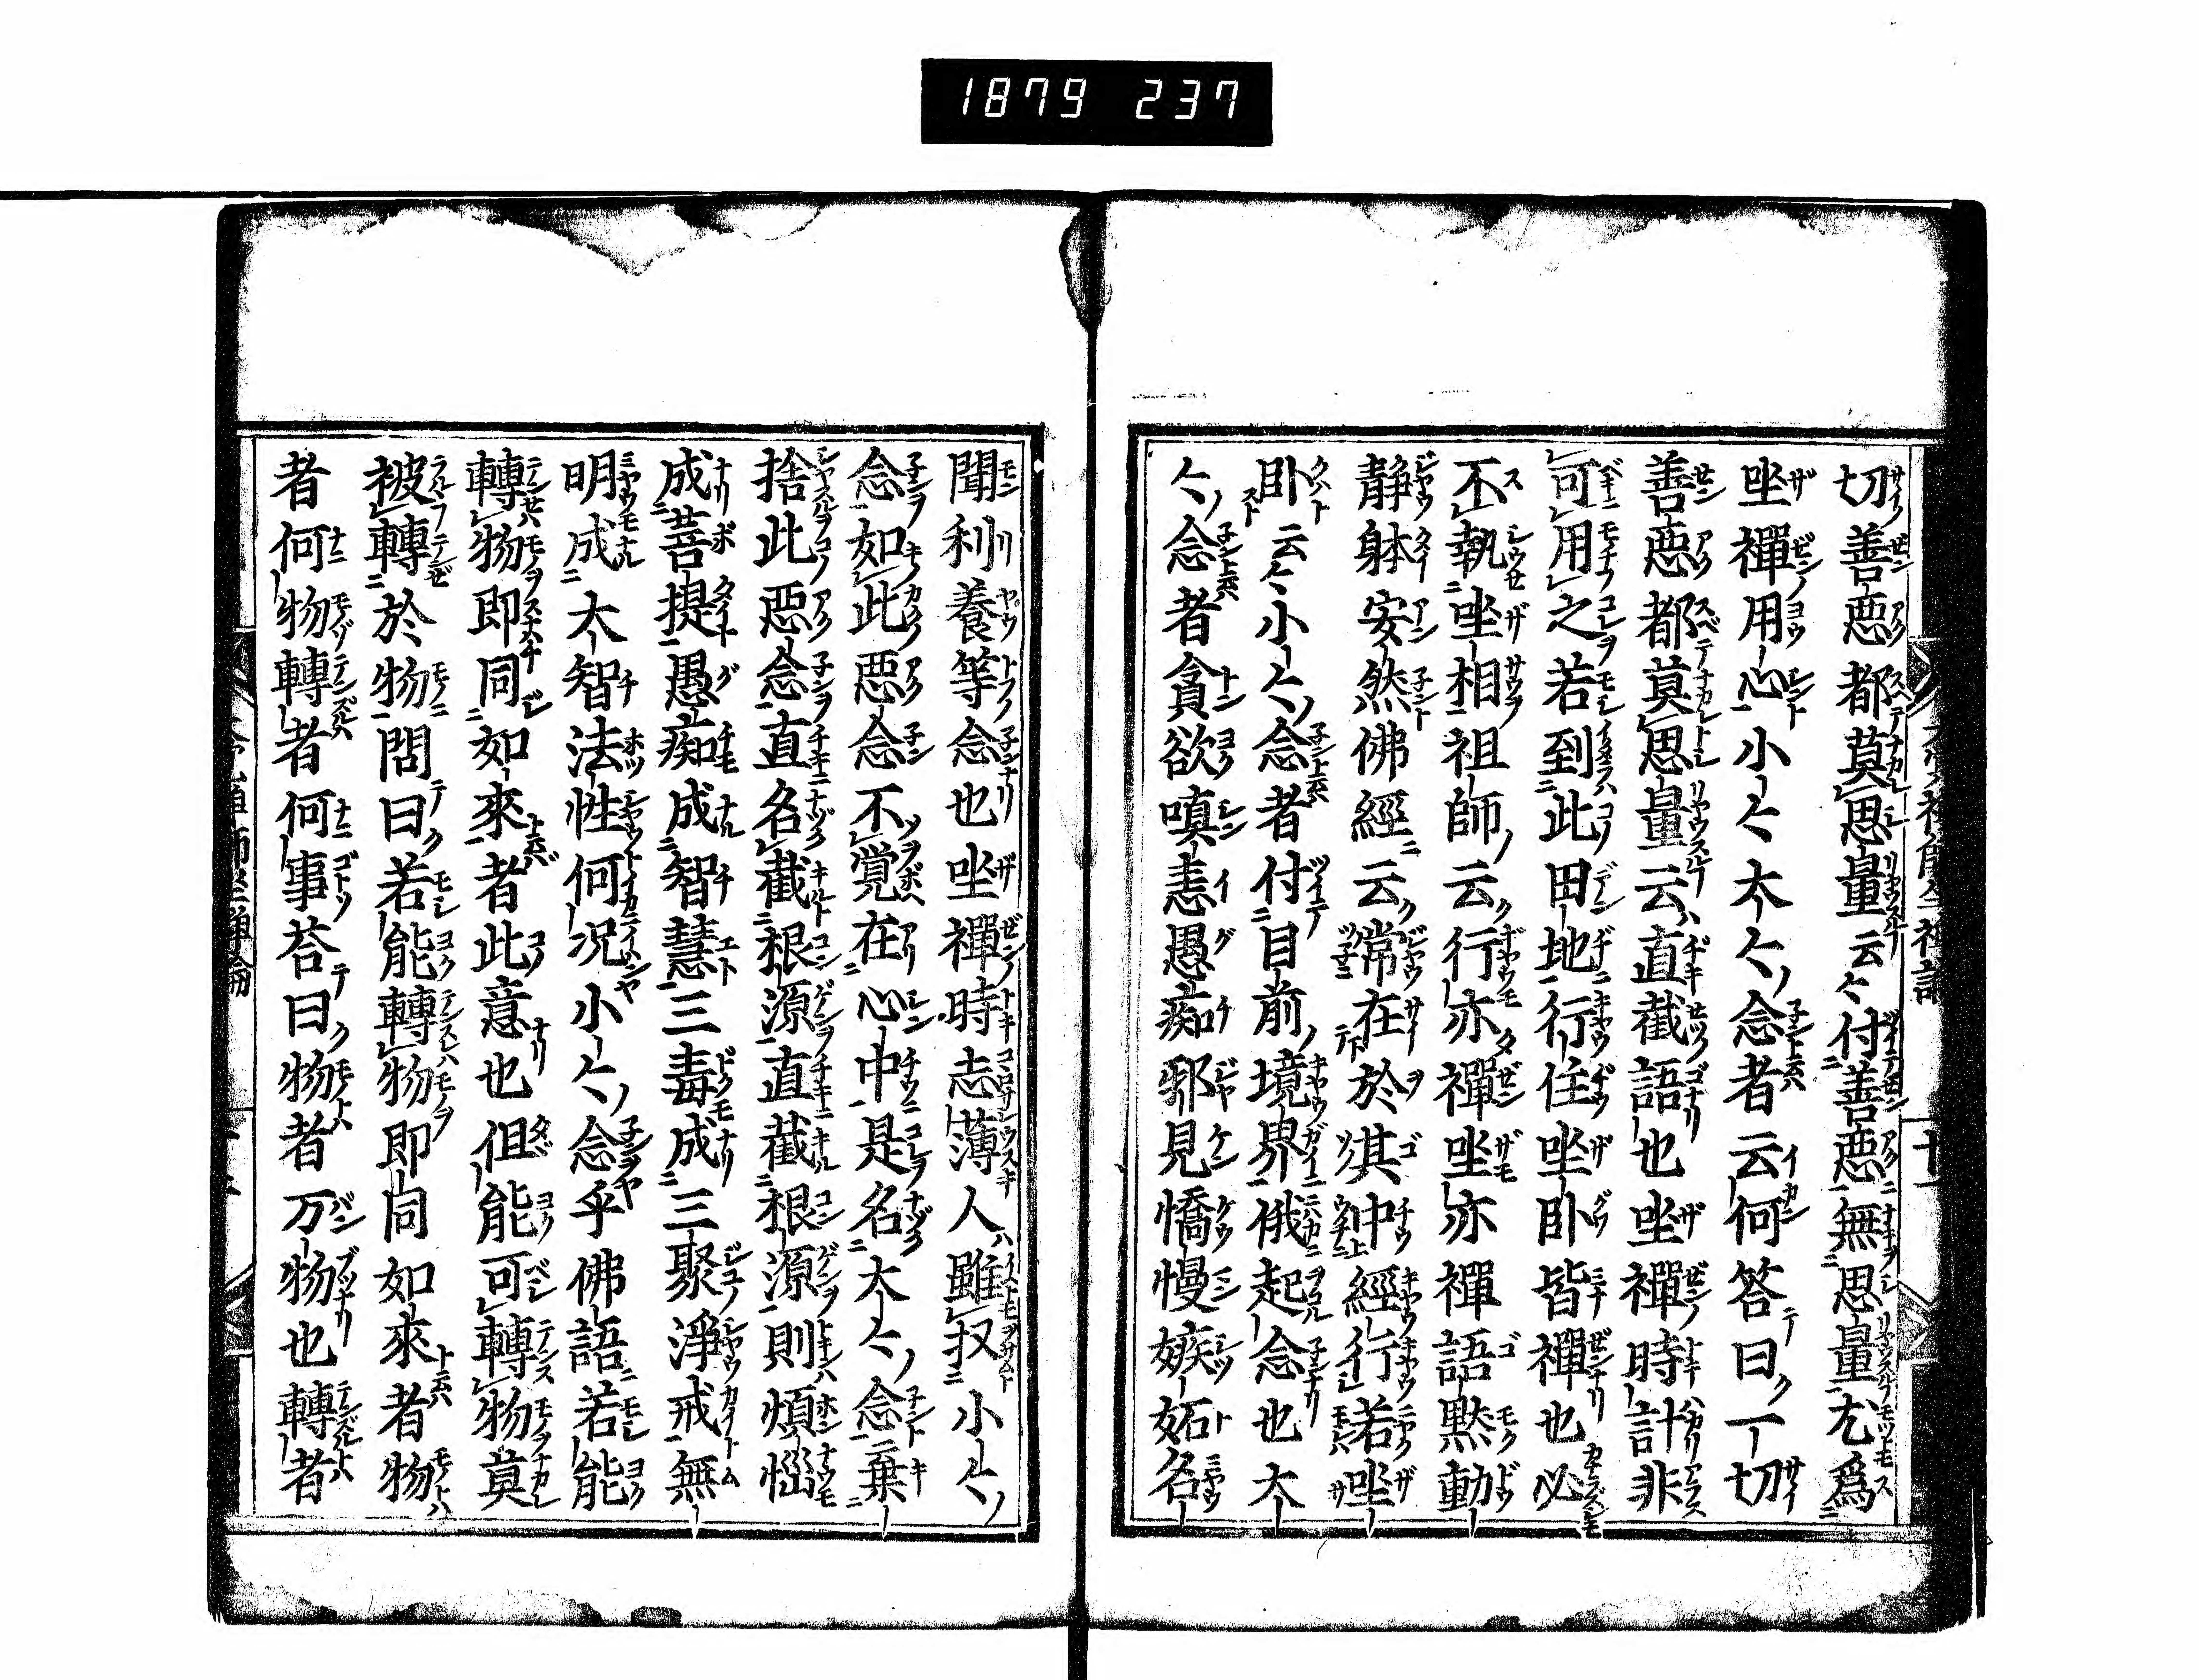 1879 237
切善惡都莫思量云々付善惡無思量尤爲
坐禪用心小々大々念者云何答曰一切
善惡都莫思量云直截語也坐禪時計非
可用之若到此田地行住坐臥皆禪也必
不執坐相祖師云行亦禪坐亦禪語黙動
静躰安然佛經云常在於其中經行若坐
臥云々小々念者付目前境界俄起念也大
々念者貪欲嗔恚愚痴邪見憍慢嫉妬名
聞利養等念也坐禪時志薄人雖収小々
念如此惡念不覚在心中是名大々念棄
捨此惡念直名截根源直截根源則煩惱
成菩提愚痴成智慧三毒成三聚淨戒無
明成大智法性何况小々念乎佛語若能
轉物即同如來者此意也但能可轉物莫
被轉於物問曰若能轉物即同如來者物
者何物轉者何事荅曰物者万物也轉者